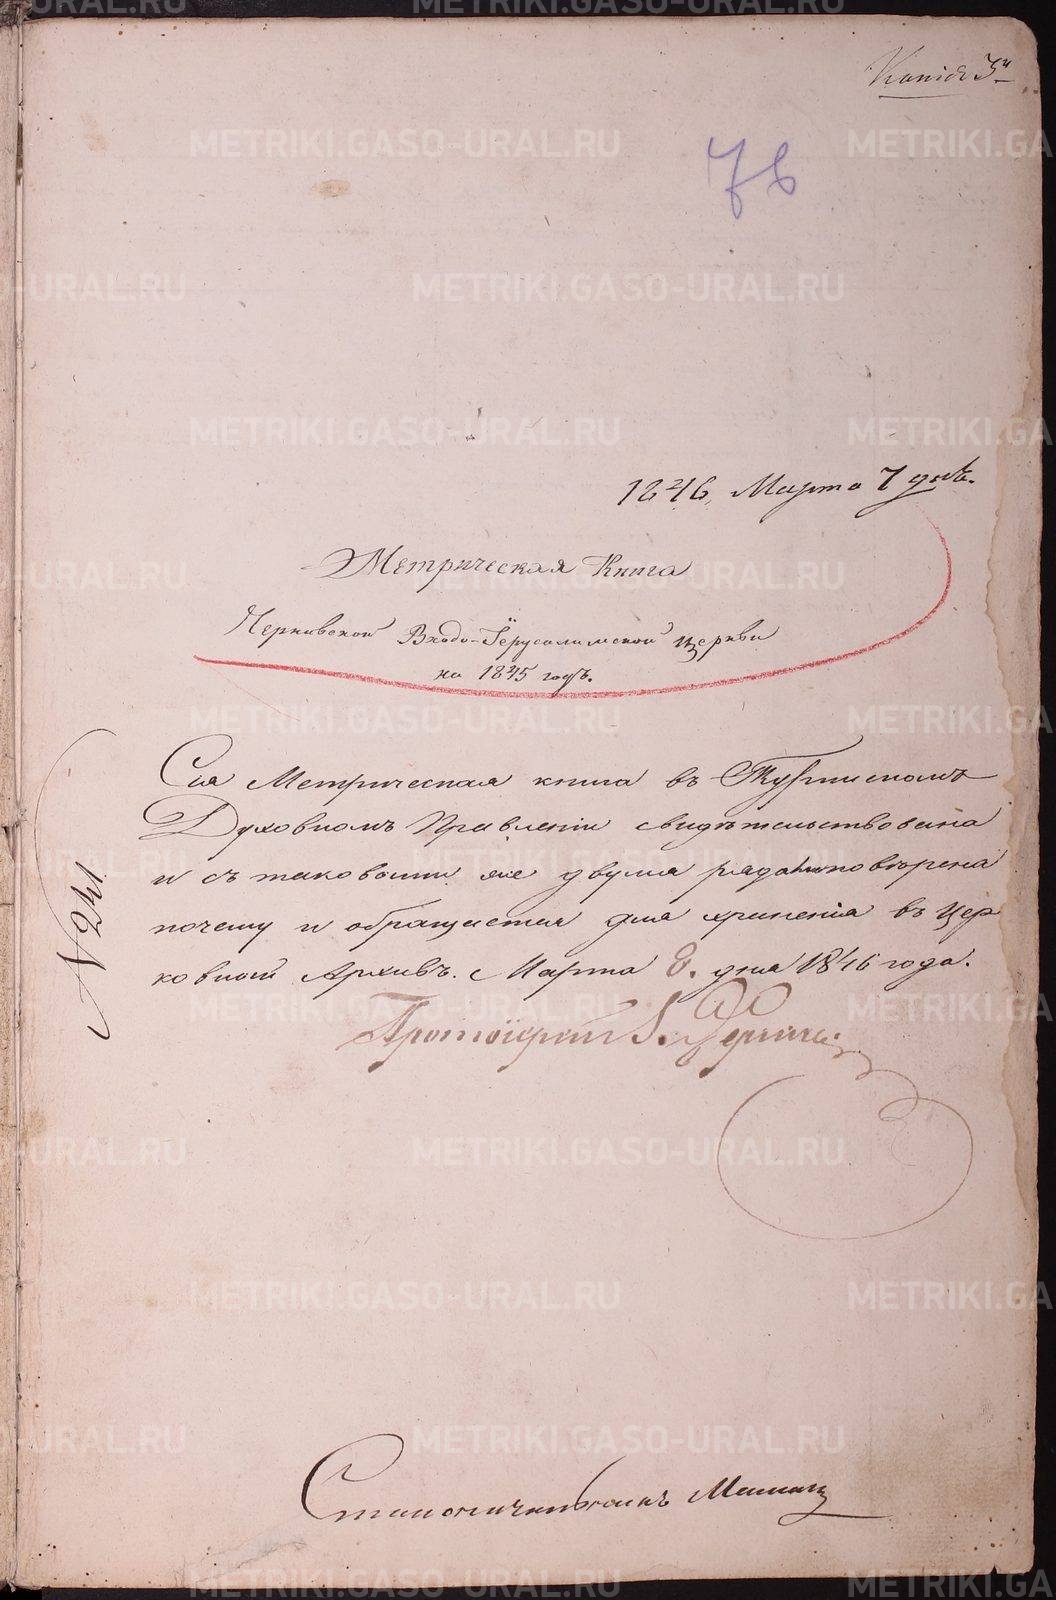 Копiя 3я
76
1846, Марта 7 дня.
Метрическая Книга
Черновской Входо-Іерусалимской церкви
на 1845 годъ.
Сія Метрическая книга въ Туринскомъ
Духовномъ Правленіи свидѣтельствована
и съ таковыми же двумя рядами повѣрена
почему и обращается для храненія въ Цер
ковной Архивъ. Марта 8. дня 1846 года.
№ 241
Протоіерей
METRIKI.GASO-URAL.RU